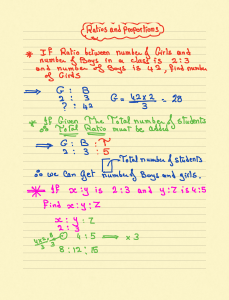 Ratios and Proportions
* If Ratio between number of Girls and
number of Boys in a class is 2:3
and number of Boys is 42, find number
of Girls
⟹ G : B
2 : 3
? : 42
G = 42x2/3 = 28
* If Given The Total number of students
Total Ratio must be added
⟹ G : B : T
2 : 3 : 5
Total number of students
∴ we can get number of Boys and girls.
* If x:y is 2:3 and y:z is 4:5
Find x:y:z
x : y : z
2 : 3
4 : 5 ⟹ x3
8 : 12 : 15